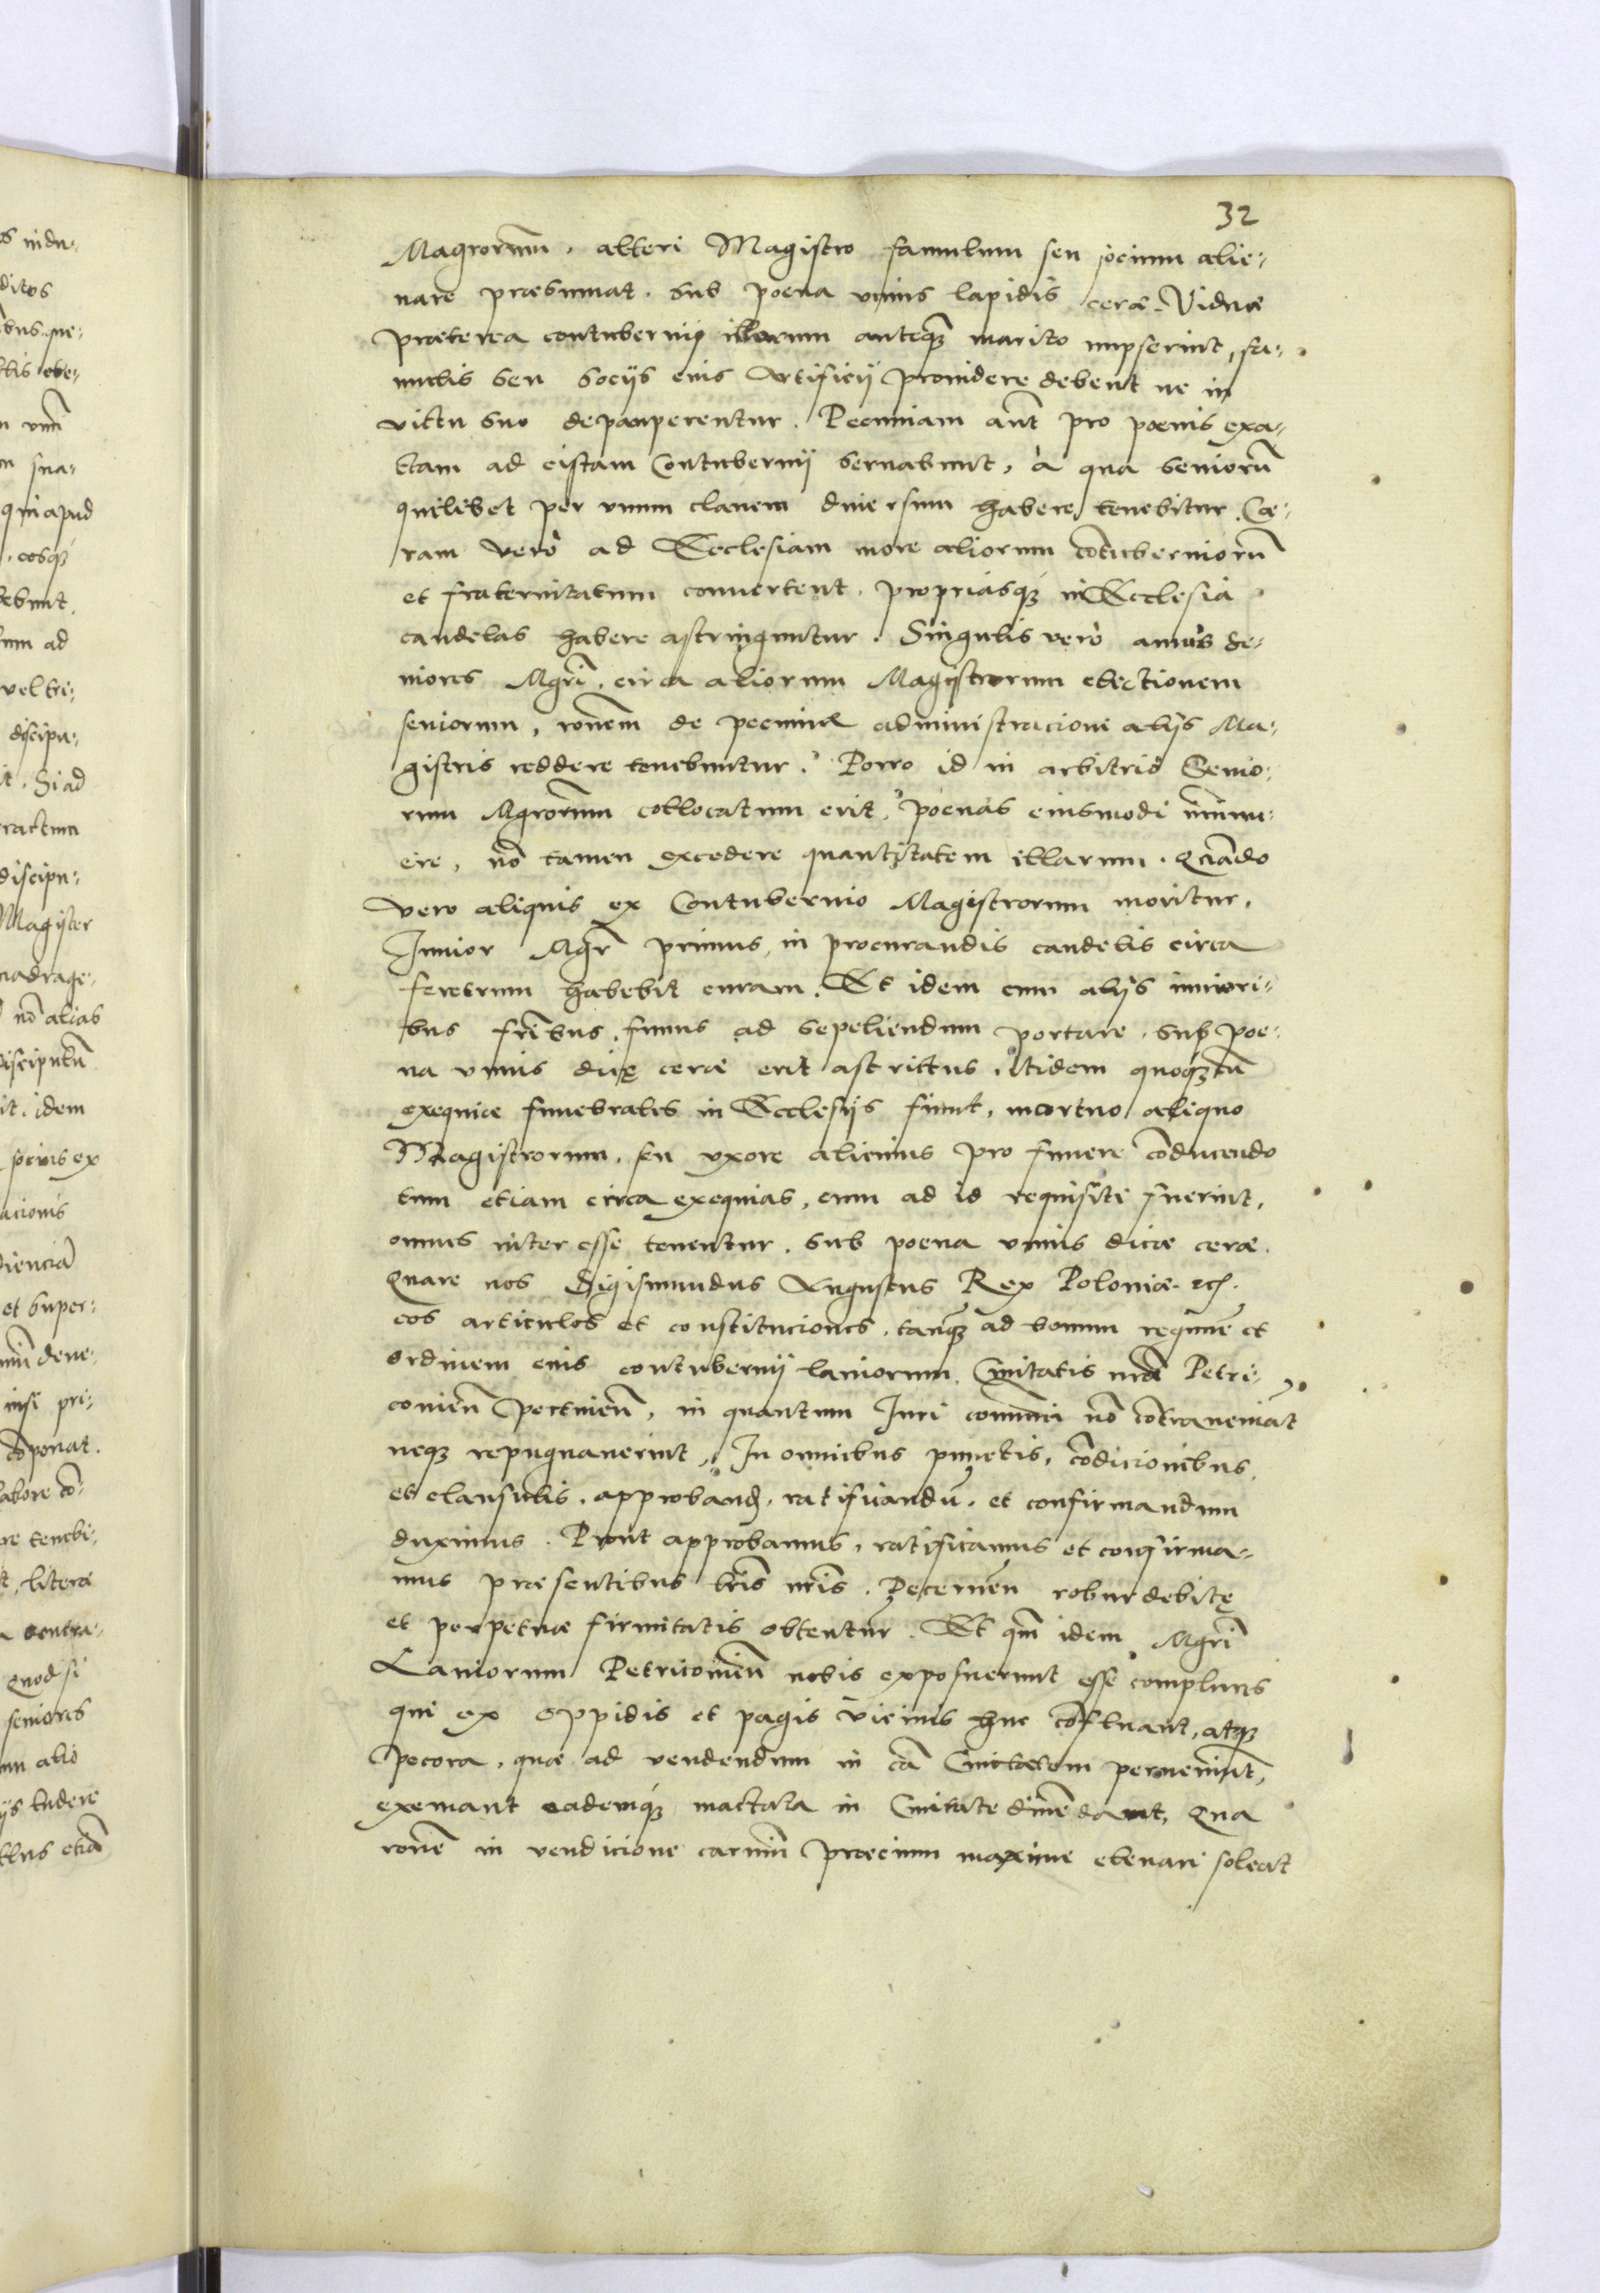 32
Magrorum̄. alteri Magistro famulum seu socium alie-
nare præsumat. sub poena vnius lapidis ceræ. Viduæ
præterea contubernij illorum anteqȝ marito nupserint, fa-
mulis seu socijs eius Artificij prouidere debent ne in
victu suo depauperentur. Pecuniam aūt pro poenis exa-
ctam ad cistam Contubernij seruabunt, à qua seniorū
quilibet per vnum clauem diuersum habere tenebitur. Cæ-
ram verò ad Ecclesiam more aliorum cōtuberniorū
et fraternitatum conuertent. propriasqȝ in Ecclesia
candelas habere astringuntur. Singulis verò annis se-
niores Mgrī. circa aliorum Magistrorum electionem
seniorum, ronem̄ de pecuniæ administracione alijs Ma-
gistris reddere tenebuntur. Porro id in arbitrio Senio-
rum Mgrorum̄ collocatum erit, poenas eiusmodi minnu-
ere, nō tamen excedere quantitatem illarum. Quādo
vero aliquis ex Contubernio Magistrorum moritur,
Junior Mgr̄ primus, in procurandis candelis circa
feretrum habebit curam. Et idem cum alijs iuniori-
bus frībus. funus ad sepeliendum portare, sub poe-
na vnius dicę ceræ erit astrictus. Itidem quoqȝ cū
exequiæ funebrales in Ecclesijs fiunt, mortuo aliquo
Magistrorum, seu vxore alicuius pro funere cōducendo
tum etiam circa exequias, cum ad id requisiti fuerint,
omnes interesse tenentur. sub poena vnius dicæ ceræ.
Quare nos Sigismundus Augustus Rex Poloniæ. etc.
eos articulos et constituciones, tanqȝ ad bonum regimē et
ordinem eius contubernij laniorum Ciuitatis nr̄æ Petri-
couien̄ pertinen̄, in quantum Juri communi nō contraueniāt
neqȝ repugnauerint, In omnibus punctis, cōdicionibus,
et clausulis, approband̄, ratificandū, et confirmandum
duximus. Prout approbamus, ratificamus et confirma-
mus præsentibus lrīs nrīs. Decernen̄ robur debitę
et perpetuæ firmitatis obtentur̄. Et qm̄ idem Mgrī
Laniorum Petricouien̄ nobis exposuerunt esse complures
qui ex oppidis et pagis vicinis huc cōfluant, atqȝ
pecora, quæ ad vendendum in eā Ciuitatem perueniunt,
exemant eademqȝ mactata in Ciuitate diuēdant, Qua
ronē in vendicione carnium̄ præcium maxime eleuari soleat